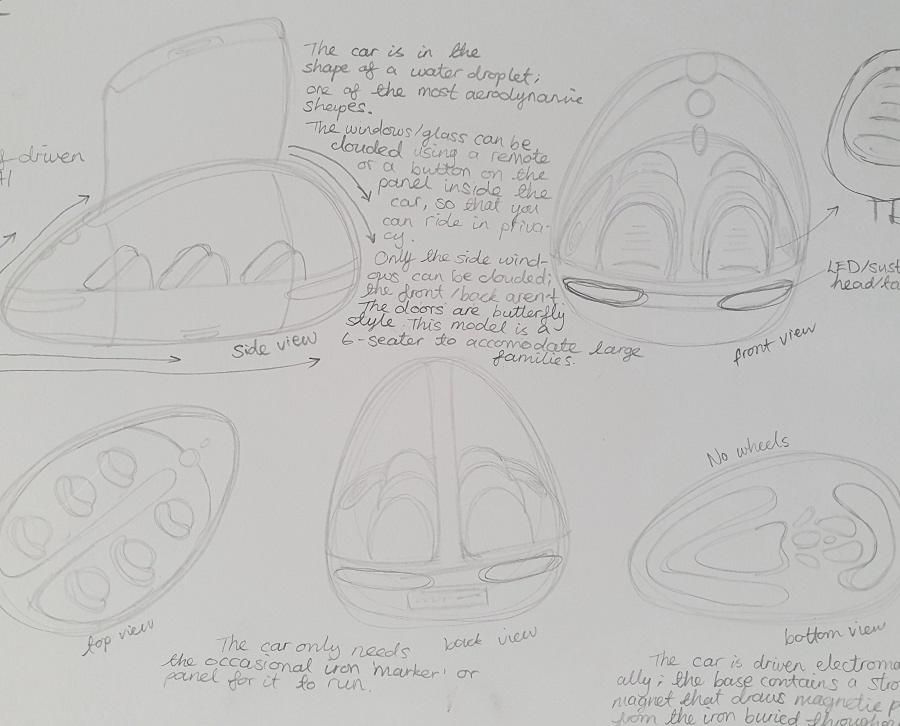 The car is in the
shape of a water droplet;
one of the most aerodynamic
shapes.
The windows/glass can be
clouded using a remote
or a button on the
panel inside the
car, so that you
can ride in priva-
cy.
Only the side wind-
ows can be clouded;
the front/back aren't.
The doors are butterfly
style. This model is a
6-seater to accomodate large
families.
driven
side view
front view
LED/sust
head/ta
No wheels
top view
back view
bottom view
The car only needs
the occasional iron 'marker' or
panel for it to run.
The car is driven electroma
ally; the base contains a stro
magnet that draws magnetic p
from the iron buried through